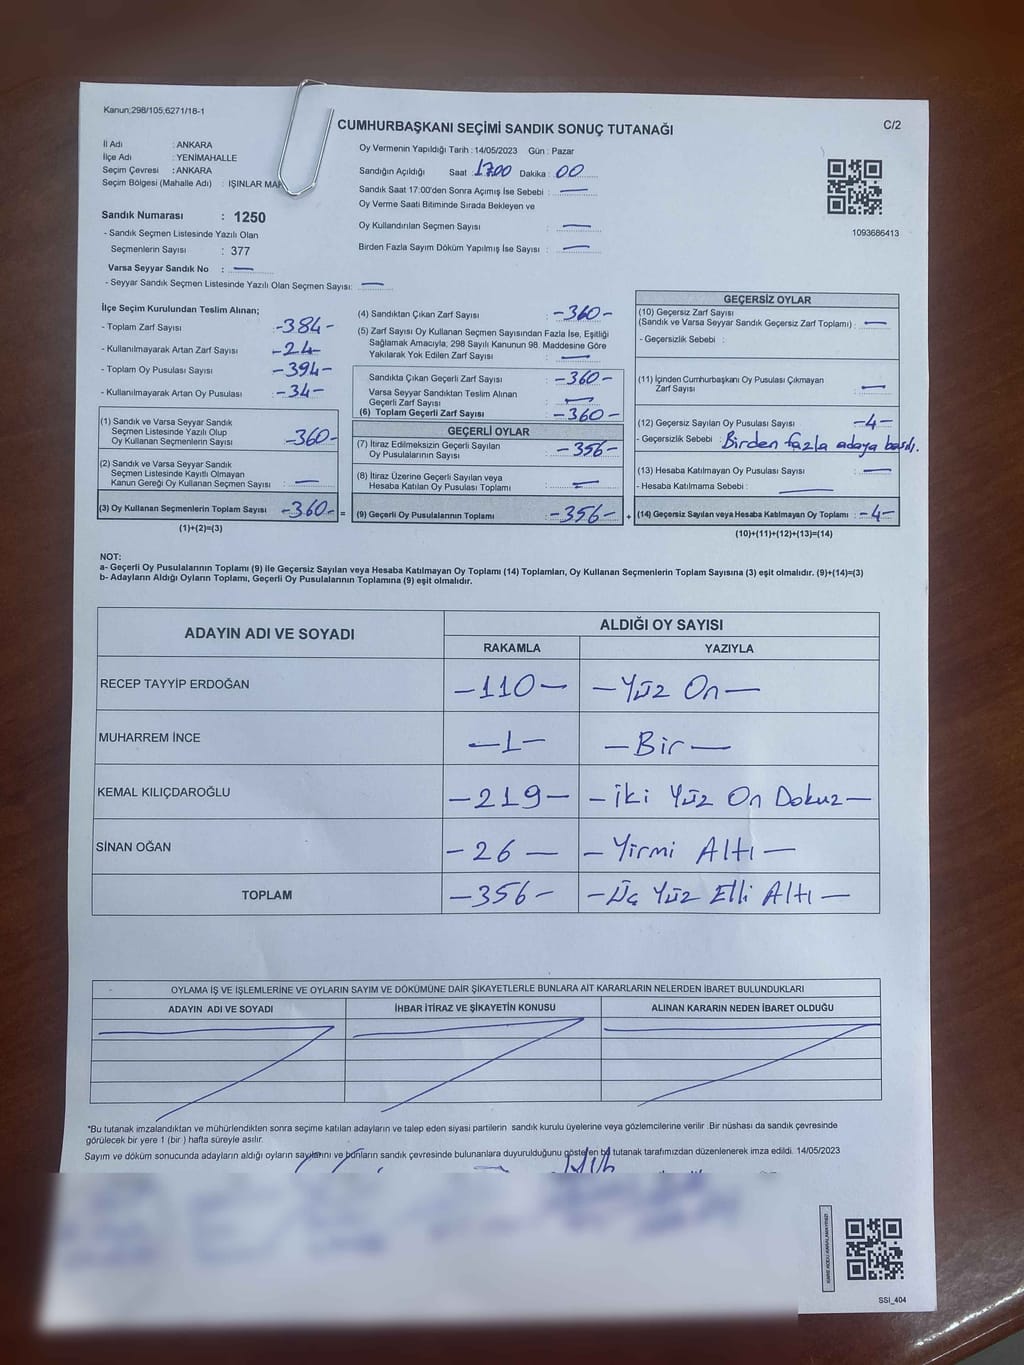 Kanun;298/105,6271/18-1
CUMHURBAŞKANI SEÇİMİ SANDIK SONUÇ TUTANAĞI
C/2
İl Adı : ANKARA
İlçe Adı : YENİMAHALLE
Seçim Çevresi : ANKARA
Seçim Bölgesi (Mahalle Adı) : IŞINLAR
Sandık Numarası : 1250
- Sandık Seçmen Listesinde Yazılı Olan
Seçmenlerin Sayısı : 377
Varsa Seyyar Sandık No : —
- Seyyar Sandık Seçmen Listesinde Yazılı Olan Seçmen Sayısı: —
Oy Vermenin Yapıldığı Tarih : 14/05/2023 Gün : Pazar
Sandığın Açıldığı Saat : 17.00 Dakika : 00
Sandık Saat 17:00'den Sonra Açımış İse Sebebi : —
Oy Verme Saati Bitiminde Sırada Bekleyen ve
Oy Kullandırılan Seçmen Sayısı : —
Birden Fazla Sayım Döküm Yapılmış İse Sayısı : —
1093686413
İlçe Seçim Kurulundan Teslim Alınan;
- Toplam Zarf Sayısı : -384-
- Kullanılmayarak Artan Zarf Sayısı : -24-
- Toplam Oy Pusulası Sayısı : -394-
- Kullanılmayarak Artan Oy Pusulası : -34-
(1) Sandık ve Varsa Seyyar Sandık
Seçmen Listesinde Yazılı Olup
Oy Kullanan Seçmenlerin Sayısı : -360-
(2) Sandık ve Varsa Seyyar Sandık
Seçmen Listesinde Kayıtlı Olmayan
Kanun Gereği Oy Kullanan Seçmen Sayısı : —
(3) Oy Kullanan Seçmenlerin Toplam Sayısı : -360- =
(1)+(2)=(3)
(4) Sandıktan Çıkan Zarf Sayısı : -360-
(5) Zarf Sayısı Oy Kullanan Seçmen Sayısından Fazla İse, Eşitliği
Sağlamak Amacıyla, 298 Sayılı Kanunun 98. Maddesine Göre
Yakılarak Yok Edilen Zarf Sayısı : —
Sandıkta Çıkan Geçerli Zarf Sayısı : -360-
Varsa Seyyar Sandıktan Teslim Alınan
Geçerli Zarf Sayısı : —
(6) Toplam Geçerli Zarf Sayısı : -360-
GEÇERLİ OYLAR
(7) İtiraz Edilmeksizin Geçerli Sayılan
Oy Pusulalarının Sayısı : -356-
(8) İtiraz Üzerine Geçerli Sayılan veya
Hesaba Katılan Oy Pusulası Toplamı : —
(9) Geçerli Oy Pusulalarının Toplamı : -356- +
GEÇERSİZ OYLAR
(10) Geçersiz Zarf Sayısı
(Sandık ve Varsa Seyyar Sandık Geçersiz Zarf Toplamı) : —
- Geçersizlik Sebebi :
(11) İçinden Cumhurbaşkanı Oy Pusulası Çıkmayan
Zarf Sayısı : —
(12) Geçersiz Sayılan Oy Pusulası Sayısı : -4-
- Geçersizlik Sebebi : Birden fazla adaya basılı.
(13) Hesaba Katılmayan Oy Pusulası Sayısı : —
- Hesaba Katılmama Sebebi : —
(14) Geçersiz Sayılan veya Hesaba Katılmayan Oy Toplamı : -4-
(10)+(11)+(12)+(13)=(14)
NOT:
a- Geçerli Oy Pusulalarının Toplamı (9) ile Geçersiz Sayılan veya Hesaba Katılmayan Oy Toplamı (14) Toplamları, Oy Kullanan Seçmenlerin Toplam Sayısına (3) eşit olmalıdır. (9)+(14)=(3)
b- Adayların Aldığı Oyların Toplamı, Geçerli Oy Pusulalarının Toplamına (9) eşit olmalıdır.
ADAYIN ADI VE SOYADI
ALDIĞI OY SAYISI
RAKAMLA YAZIYLA
RECEP TAYYİP ERDOĞAN -110- -Yüz On-
MUHARREM İNCE -1- -Bir-
KEMAL KILIÇDAROĞLU -219- -İki Yüz On Dokuz-
SİNAN OĞAN -26- -Yirmi Altı-
TOPLAM -356- -Üç Yüz Elli Altı-
OYLAMA İŞ VE İŞLEMLERİNE VE OYLARIN SAYIM VE DÖKÜMÜNE DAİR ŞİKAYETLERLE BUNLARA AİT KARARLARIN NELERDEN İBARET BULUNDUKLARI
ADAYIN ADI VE SOYADI İHBAR İTİRAZ VE ŞİKAYETİN KONUSU ALINAN KARARIN NEDEN İBARET OLDUĞU
*Bu tutanak imzalandıktan ve mühürlendikten sonra seçime katılan adayların ve talep eden siyasi partilerin sandık kurulu üyelerine veya gözlemcilerine verilir .Bir nüshası da sandık çevresinde
görülecek bir yere 1 (bir ) hafta süreyle asılır.
Sayım ve döküm sonucunda adayların aldığı oyların sayılarını ve bunların sandık çevresinde bulunanlara duyurulduğunu gösteren bu tutanak tarafımızdan düzenlenerek imza edildi. 14/05/2023
SSI_404